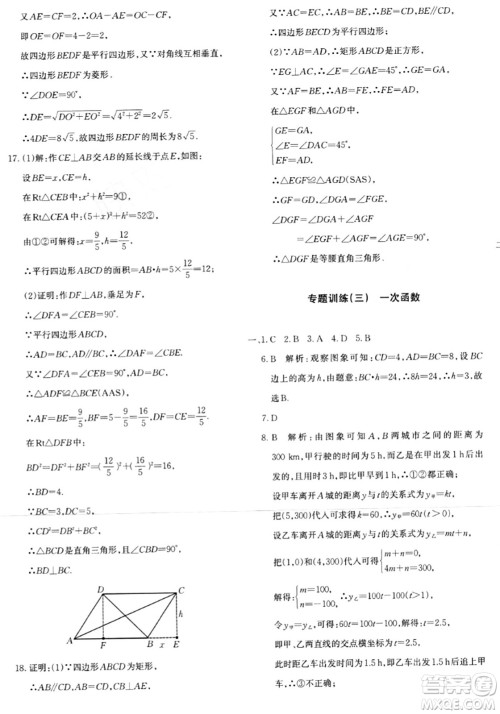 又∵AE=CF=2,∴OA-AE=OC-CF,
即OE=OF=4-2=2,
故四边形BEDF是平行四边形,又∵对角线互相垂直,
∴四边形BEDF为菱形.
∵∠DOE=90°,
∴DE=√(DO²+EO²)=√(4²+2²)=2√5.
∴4DE=8√5,故四边形BEDF的周长为8√5.
17.(1)解:作CE⊥AB交AB的延长线于点E,如图:
设BE=x,CE=h,
在Rt△CEB中:x²+h²=9①,
在Rt△CEA中:(5+x)²+h²=52②,
由①②可解得:x=9/5,h=12/5,
∴平行四边形ABCD的面积=AB·h=5×12/5=12;
(2)证明:作DF⊥AB,垂足为F,
∴∠DFA=∠CEB=90°,
∵平行四边形ABCD,
∴AD=BC,AD∥BC,
∴∠DAF=∠CBE,
又∵∠DFA=∠CEB=90°,AD=BC,
∴△ADF≌△BCE(AAS),
∴AF=BE=9/5,BF=5-9/5=16/5,DF=CE=12/5,
在Rt△DFB中:
BD²=DF²+BF²=(12/5)²+(16/5)²=16,
∴BD=4.
∵BC=3,DC=5,
∴CD²=DB²+BC²,
∴△DBC是直角三角形,
∴BD⊥BC.
D C
h
A F B E
18.证明:(1)∵四边形ABCD为矩形,
∴AB∥CD,AB=CD,∠DAB=90°,
∴四边形ABDF是平行四边形;
(2)∵AB=AD,∴矩形ABCD是正方形,
∵EG⊥AB,∴四边形AEGD是矩形,
∴GE=AD,GD=AE,
又∵AF=BE,∴AB=EF,
∴AD=EF,∴GE=EF,
在△EGF和△AGD中,
{GE=GA,
∠GEF=∠DGA,
EF=GA,
∴△EGF≌△AGD(SAS),
∴GF=GD,∠DGA=∠EGF,
∠DGF=∠EGF+∠DGE=∠DGA+∠DGE=90°,
∴△DGF是等腰直角三角形.
专题训练(三) 一次函数
一、1.C 2.B 3.A 4.D 5.B
6.B 解析:观察图象可知:AB=AD=CD=8,设BC
边上的高为h,由题意:BC·h=24,∴8h=24,∴h=3,故
选B.
7.D
8.B 解析:由图象可知A,B两城市之间的距离为
300 km,甲行驶的时间为5 h,而乙是在甲出发1 h后出
发的,且用时3 h,即比甲早到1 h,∴①②都正确;
设甲车离开A城的距离y与t的关系式为y甲=kt,
把(5,300)代入可求得k=60,∴y甲=60t,
设乙车离开A城的距离y与t的关系式为y乙=mt+n,
把(1,0)和(4,300)代入可得{m+n=0,
4m+n=300,
解得:{m=100,
n=-100,∴y乙=100t-100(t>1),
令y甲=y乙可得:60t=100t-100,解得t=2.5,
即甲、乙两直线的交点横坐标为t=2.5,
此时乙车出发时间为1.5 h,即乙车出发1.5 h后追上甲
车,∴③不正确;